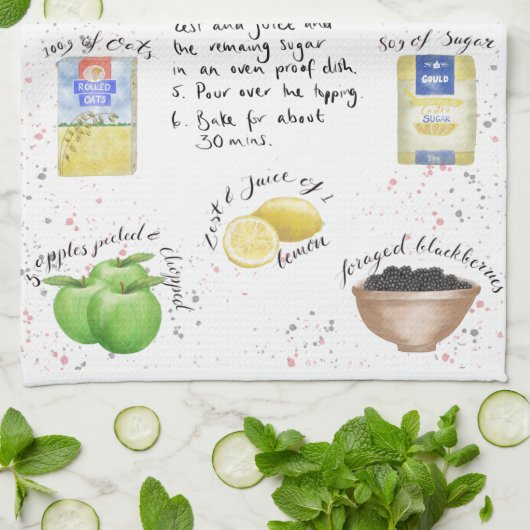 zest and juice and
100g of Oats
80g of Sugar
the remaing sugar
in an oven proof dish.
5. Pour over the topping.
6. Bake for about
30 mins.
ROLLED
OATS
GOULD
Caster
SUGAR
1kg
Zest & Juice of 1
lemon
5 apples peeled & chopped
foraged blackberries